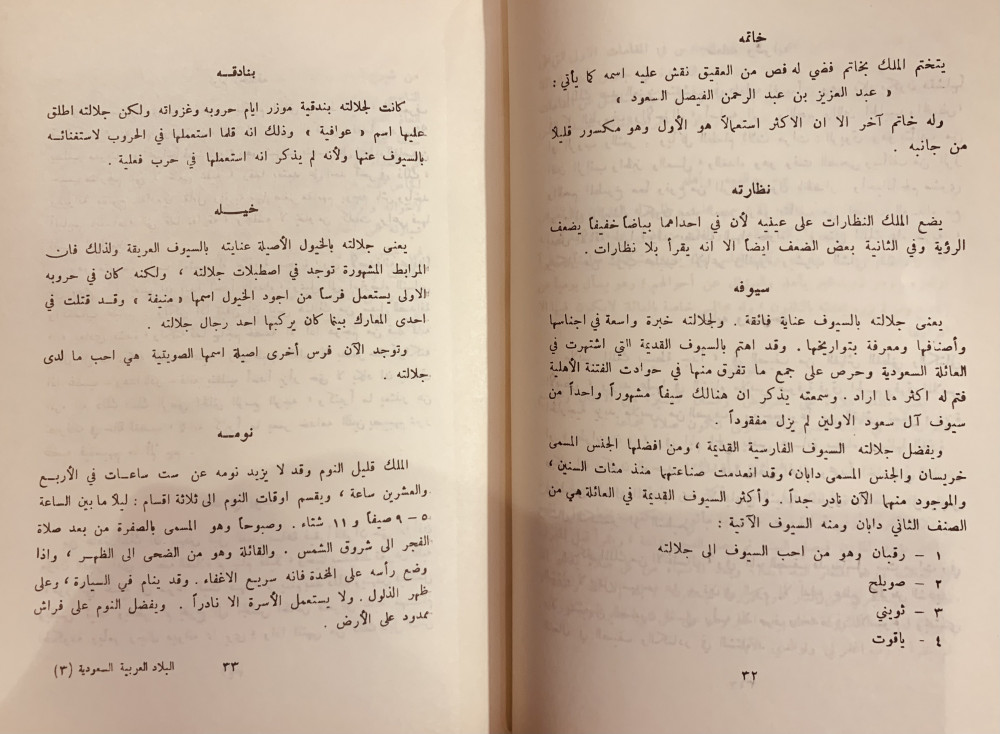 خاتمه
يتختم الملك بخاتم فضي له فص من العقيق نقش عليه اسمه كما يأتي :
« عبد العزيز بن عبد الرحمن الفيصل السعود »
وله خاتم آخر الا ان الاكثر استعمالاً هو الأول وهو مكسور قليلاً
من جانبه .
نظارته
يضع الملك النظارات على عينيه لأن في احداهما بياضاً خفيفاً يضعف
الرؤية وفي الثانية بعض الضعف ايضاً الا انه يقرأ بلا نظارات .
سيوفه
يعنى جلالته بالسيوف عناية فائقة . ولجلالته خبرة واسعة في اجناسها
وأصنافها ومعرفة بتواريخها . وقد اهتم بالسيوف القديمة التي اشتهرت في
العائلة السعودية وحرص على جمع ما تفرق منها في حوادث الفتنة الأهلية
فتم له اكثر ما اراد . وسمعته يذكر ان هنالك سيفاً مشهوراً واحداً من
سيوف آل سعود الاولين لم يزل مفقوداً .
ويفضل جلالته السيوف الفارسية القديمة ، ومن افضلها الجنس المسمى
خريسان والجنس المسمى دابان ، وقد انعدمت صناعتها منذ مئات السنين ،
والموجود منها الآن نادر جداً . وأكثر السيوف القديمة في العائلة هي من
الصنف الثاني دابان ومنه السيوف الآتية :
١ - رقبان وهو من احب السيوف الى جلالته
٢ - صويلح
٣ - ثويني
٤ - ياقوت
٣٢
بنادقـه
كانت لجلالته بندقية موزر ايام حروبه وغزواته ولكن جلالته اطلق
عليها اسم « عوافية » وذلك انه قلما استعملها في الحروب لاستغنائـه
بالسيوف عنها ولأنه لم يذكر انه استعملها في حرب فعلية .
خيـله
يعنى جلالته بالخيول الأصيلة عنايته بالسيوف العريقة ولذلك فان
المرابط المشهورة توجد في اصطبلات جلالته ، ولكنه كان في حروبه
الاولى يستعمل فرساً من اجود الخيول اسمها « منيفة » وقـد قتلت في
احدى المعارك بينما كان يركبها احد رجال جلالته .
وتوجد الآن فرس أخرى اصيلة اسمها الصويتية هي احب ما لدى
جلالته .
نومـه
الملك قليل النوم وقد لا يزيد نومه عن ست ساعـات في الأربـع
والعشرين ساعة ، ويقسم اوقات النوم الى ثلاثة اقسام : ليلا ما بين الساعة
٥ – ٩ صيفاً و ١١ شتاء . وصبوحاً وهو المسمى بالصفرة من بعد صلاة
الفجر الى شروق الشمس . والقائلة وهو من الضحى الى الظهـر ، واذا
وضع رأسه على المخدة فانه سريـع الاغفاء . وقد ينام في السيارة ، وعلى
ظهر الذلول . ولا يستعمل الأسرة الا نادراً . ويفضل النوم على فراش
ممدود على الأرض .
٣٣
البلاد العربية السعودية (٣)